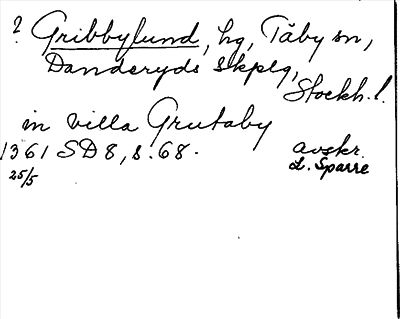 ? Gribbylund, hg, Täby sn,
Danderyds skplg,
Stockh. l.
in villa Grutaby
1361 SD 8, s. 68. avskr.
25/5 L. Sparre